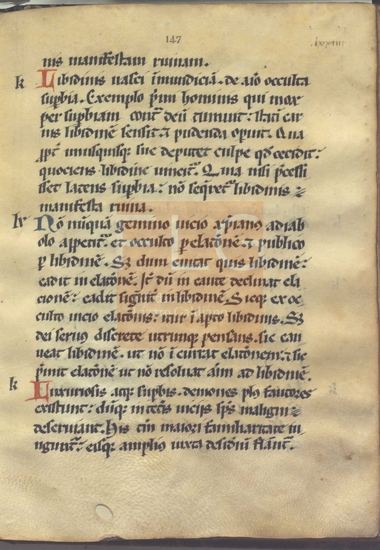 147
nis manifestam ruinam.
k Libidinis nasci inmundiciā. de aīo occulta
supbia. Exemplo p̄mi hominis qui mox
per supbiam cont̄ deū tumuit: statī car
nis libidinē sensit: ⁊ pudenda opuit. Qua
ꝓpt̄ unusquisq; sue deputet culpe qd̄ cecidit:
quociens libidine uincit̄. Q̄ma nisi p̄cessi
isset latens supbia: nō seqret̄ libidinis
manifesta ruina.
Nō nūquā gemino uicio xp̄ianꝰ a diab
olo appetit̄. et occulto p elacōnē ⁊ publico
p libidinē. Sꝫ dum euitat quis libidinē:
cadit in elacōnē. Jt̄ dū in caute declinat ela
cionē: cadit in libidinē. Sicq; ex oc
culto uicio elacōnis: itur ī apto libidinis. Sꝫ
dei seruꝰ discrete utrunque pensans. sic cau
ueat libidinē. ut nō ī currat elacōnem: ⁊ sic
p̄mit elacōnē ut nō resoluat aīm ad libidinē.
k Luxuriosis atq; supbis. demones plꝰ fautores
existunt: in cet̄is uicijs
deseruiant. His tm̄ maiori familiaritate iu
ngunt̄: eisq; ampliꝰ iuxta desideriū